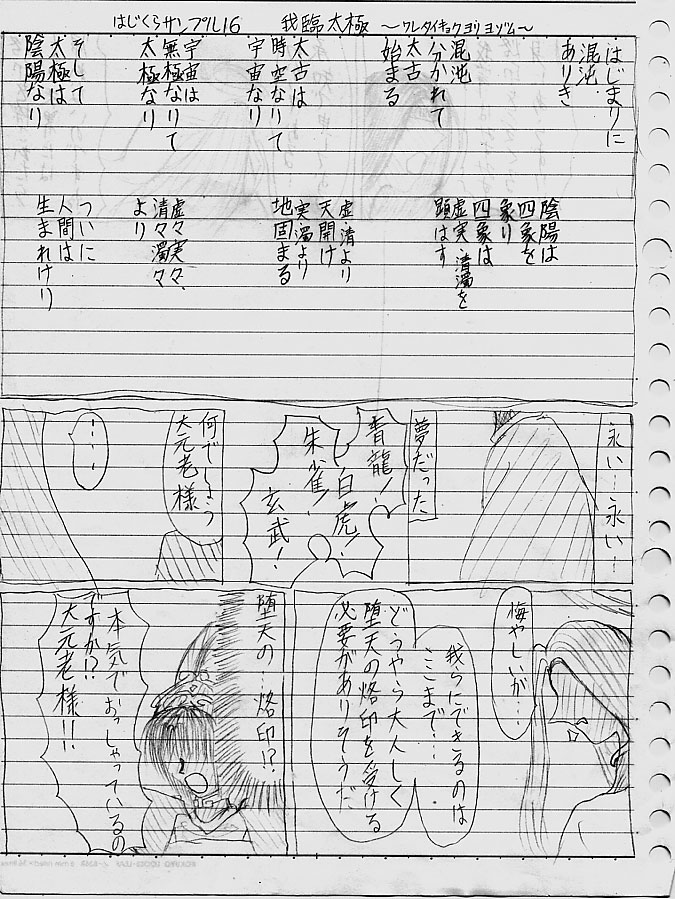 はじくらサンプル16 我臨太極 ～ワレタイキョクヨリノゾム～
はじまりに
混沌
ありき
混沌
分かれて
太古
始まる
太古は
時空なりて
宇宙なり
宇宙は
無極なりて
太極なり
そして
太極は
陰陽なり
陰陽は
四象を
象り
四象は
虚実・清濁を
顕はす
虚・清より
天開け
実・濁より
地固まる
虚々実々、
清々濁々
より
ついに
人間は
生まれけり
永い…永い…
夢だった
青龍！
白虎！
朱雀！
玄武！
何でしょう
大元老様
……
悔やしいが…
我らにできるのは
ここまで…
どうやら大人しく
堕天の烙印を受ける
必要がありそうだ
堕天の…烙印!?
本気でおっしゃっているの
ですか!?
大元老様!!